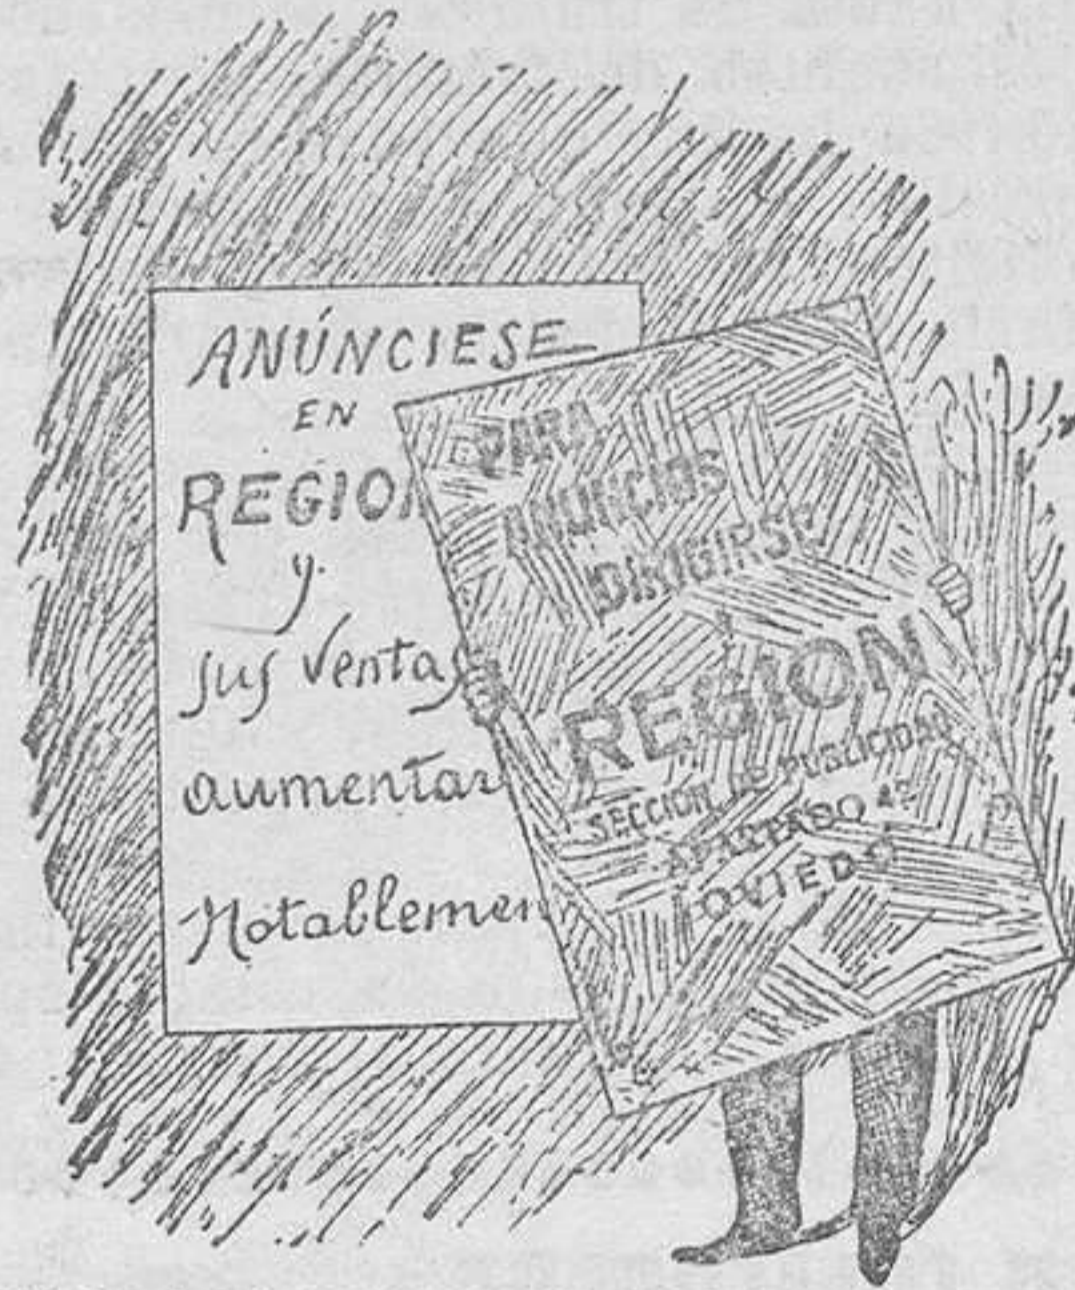 ANÚNCIESE
EN
REGION
y
sus ventas
aumentar
Notablemen
PARA
ANUNCIOS
DIRIGIRSE
REGION
SECCIÓN DE PUBLICIDAD
APARTADO 42
OVIEDO